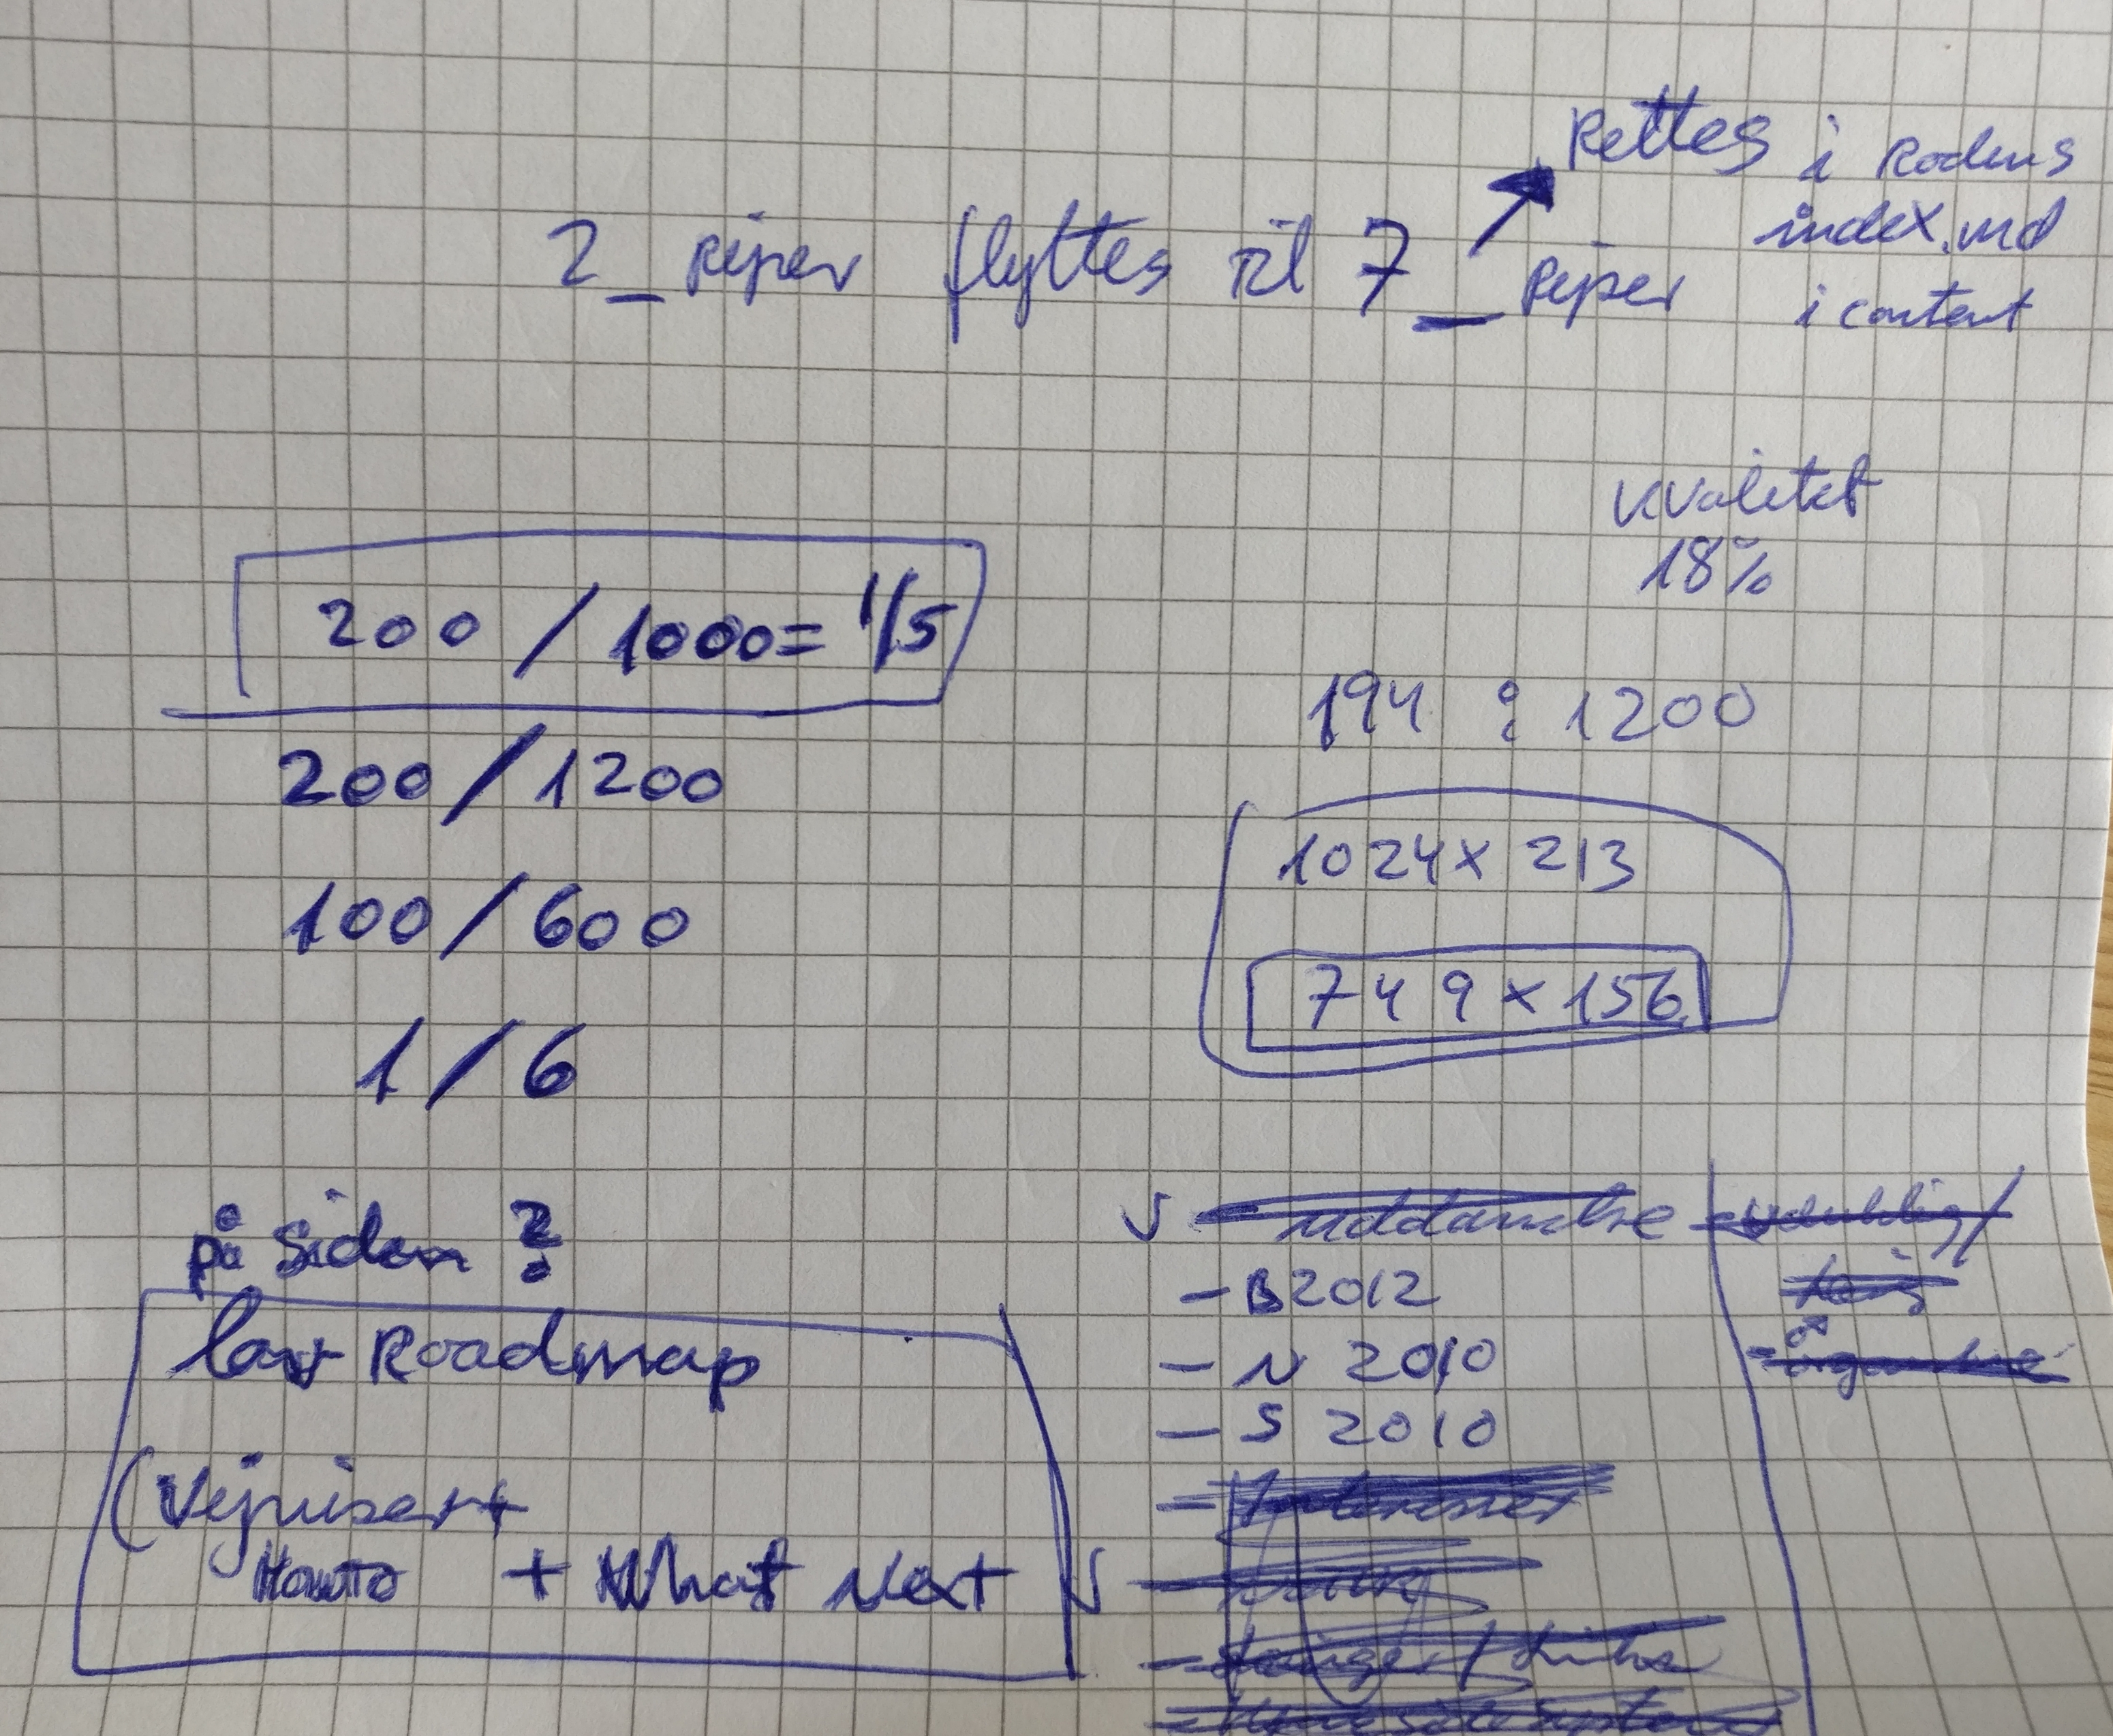 Rettes i Rodens
index.md
i content
2_piper flyttes til 7_piper
kvalitet
18%
200 / 1000 = 1/5
200 / 1200
100 / 600
1 / 6
194 : 1200
1024 x 213
749 x 156
på siden ?
lav Roadmap
(Vejviser +
Howto + What Next
uddannelse
- B 2012
- N 2010
- S 2010
- Interesser